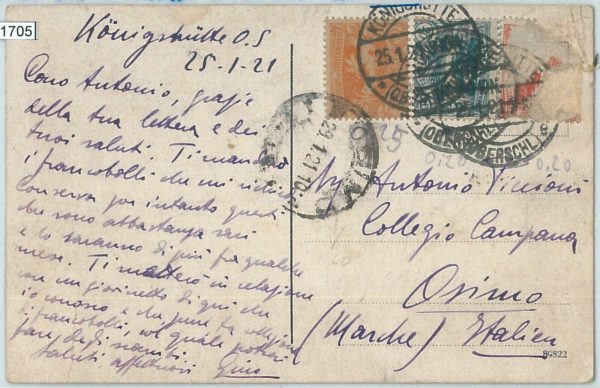 1705
Königshütte O.S
25-1-21
Caro Antonio, grazie
della tua lettera e dei
tuoi saluti. Ti mando
i francobolli che mi richiedi
Conserva per intanto questi
che sono abbastanza rari
e lo saranno di più fra qualche
mese. Ti metterò in relazione
con un giovinetto di qui che
io conosco e che pure fa collezione
di francobolli, col quale potrai
fare degli scambi
Saluti affettuosi Gino
KÖNIGSHÜTTE
25.1.21
(OBERSCHL)
OSIMO
29.1.21.10
0,25
0,20
0,20
Antonio
Collegio Campana
Osimo
(Marche) Italien
89822